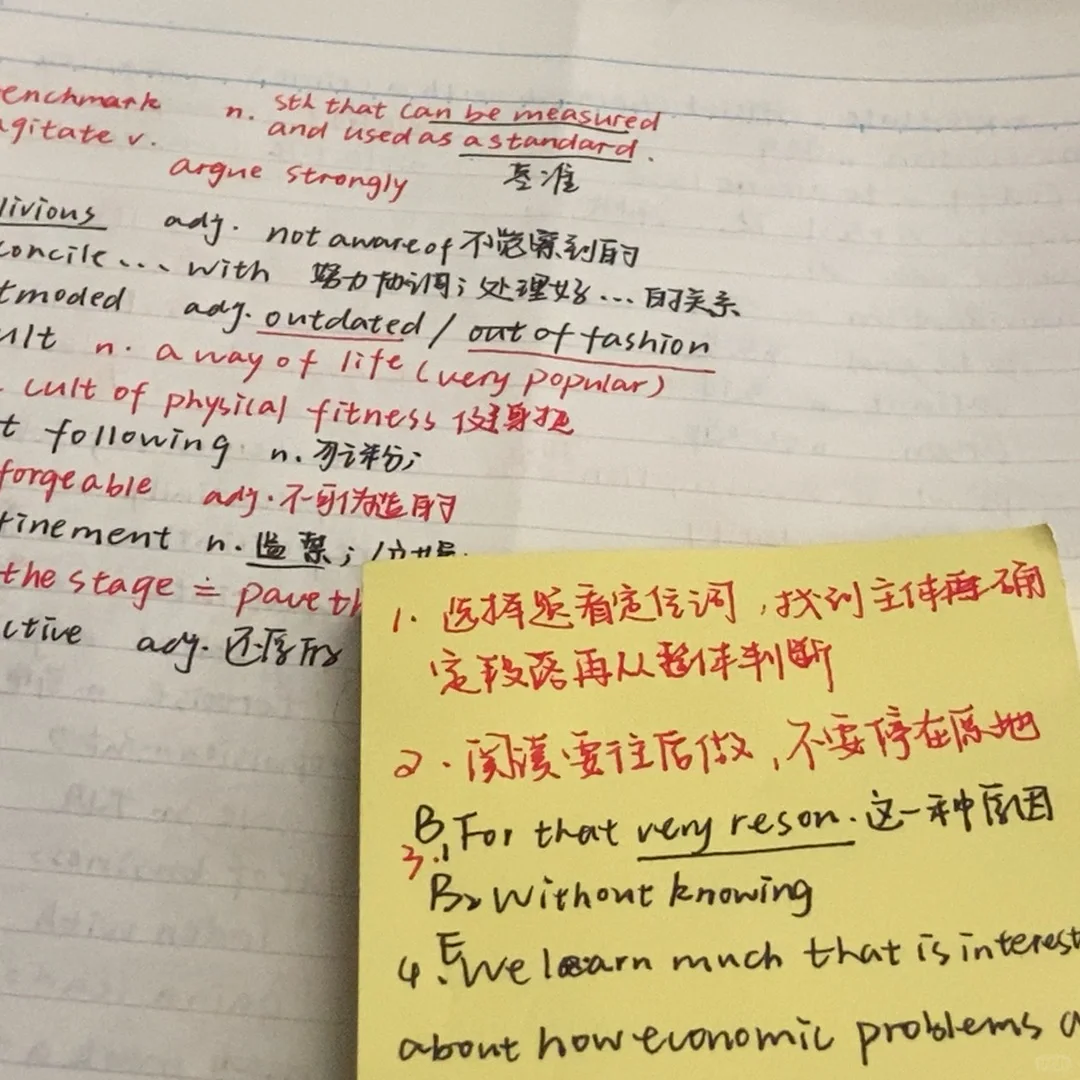 enchmark n. sth that can be measured
agitate v. and used as a standard.
argue strongly 基准
livious adj. not aware of 不觉察到的
concile... with 努力协调；处理好...的关系
tmoded adj. outdated / out of fashion
ult n. a way of life (very popular)
cult of physical fitness 健身热
t following n.
forgeable adj. 不可伪造的
finement n. 监禁；
the stage = pave th
ctive adj.
1. 选择题看定位词，找到主体再确
定段落再从整体判断
2. 阅读要往后做，不要停在原地
3. B1 For that very reson. 这一种原因
B2 Without knowing
4. E We learn much that is interest
about how economic problems a